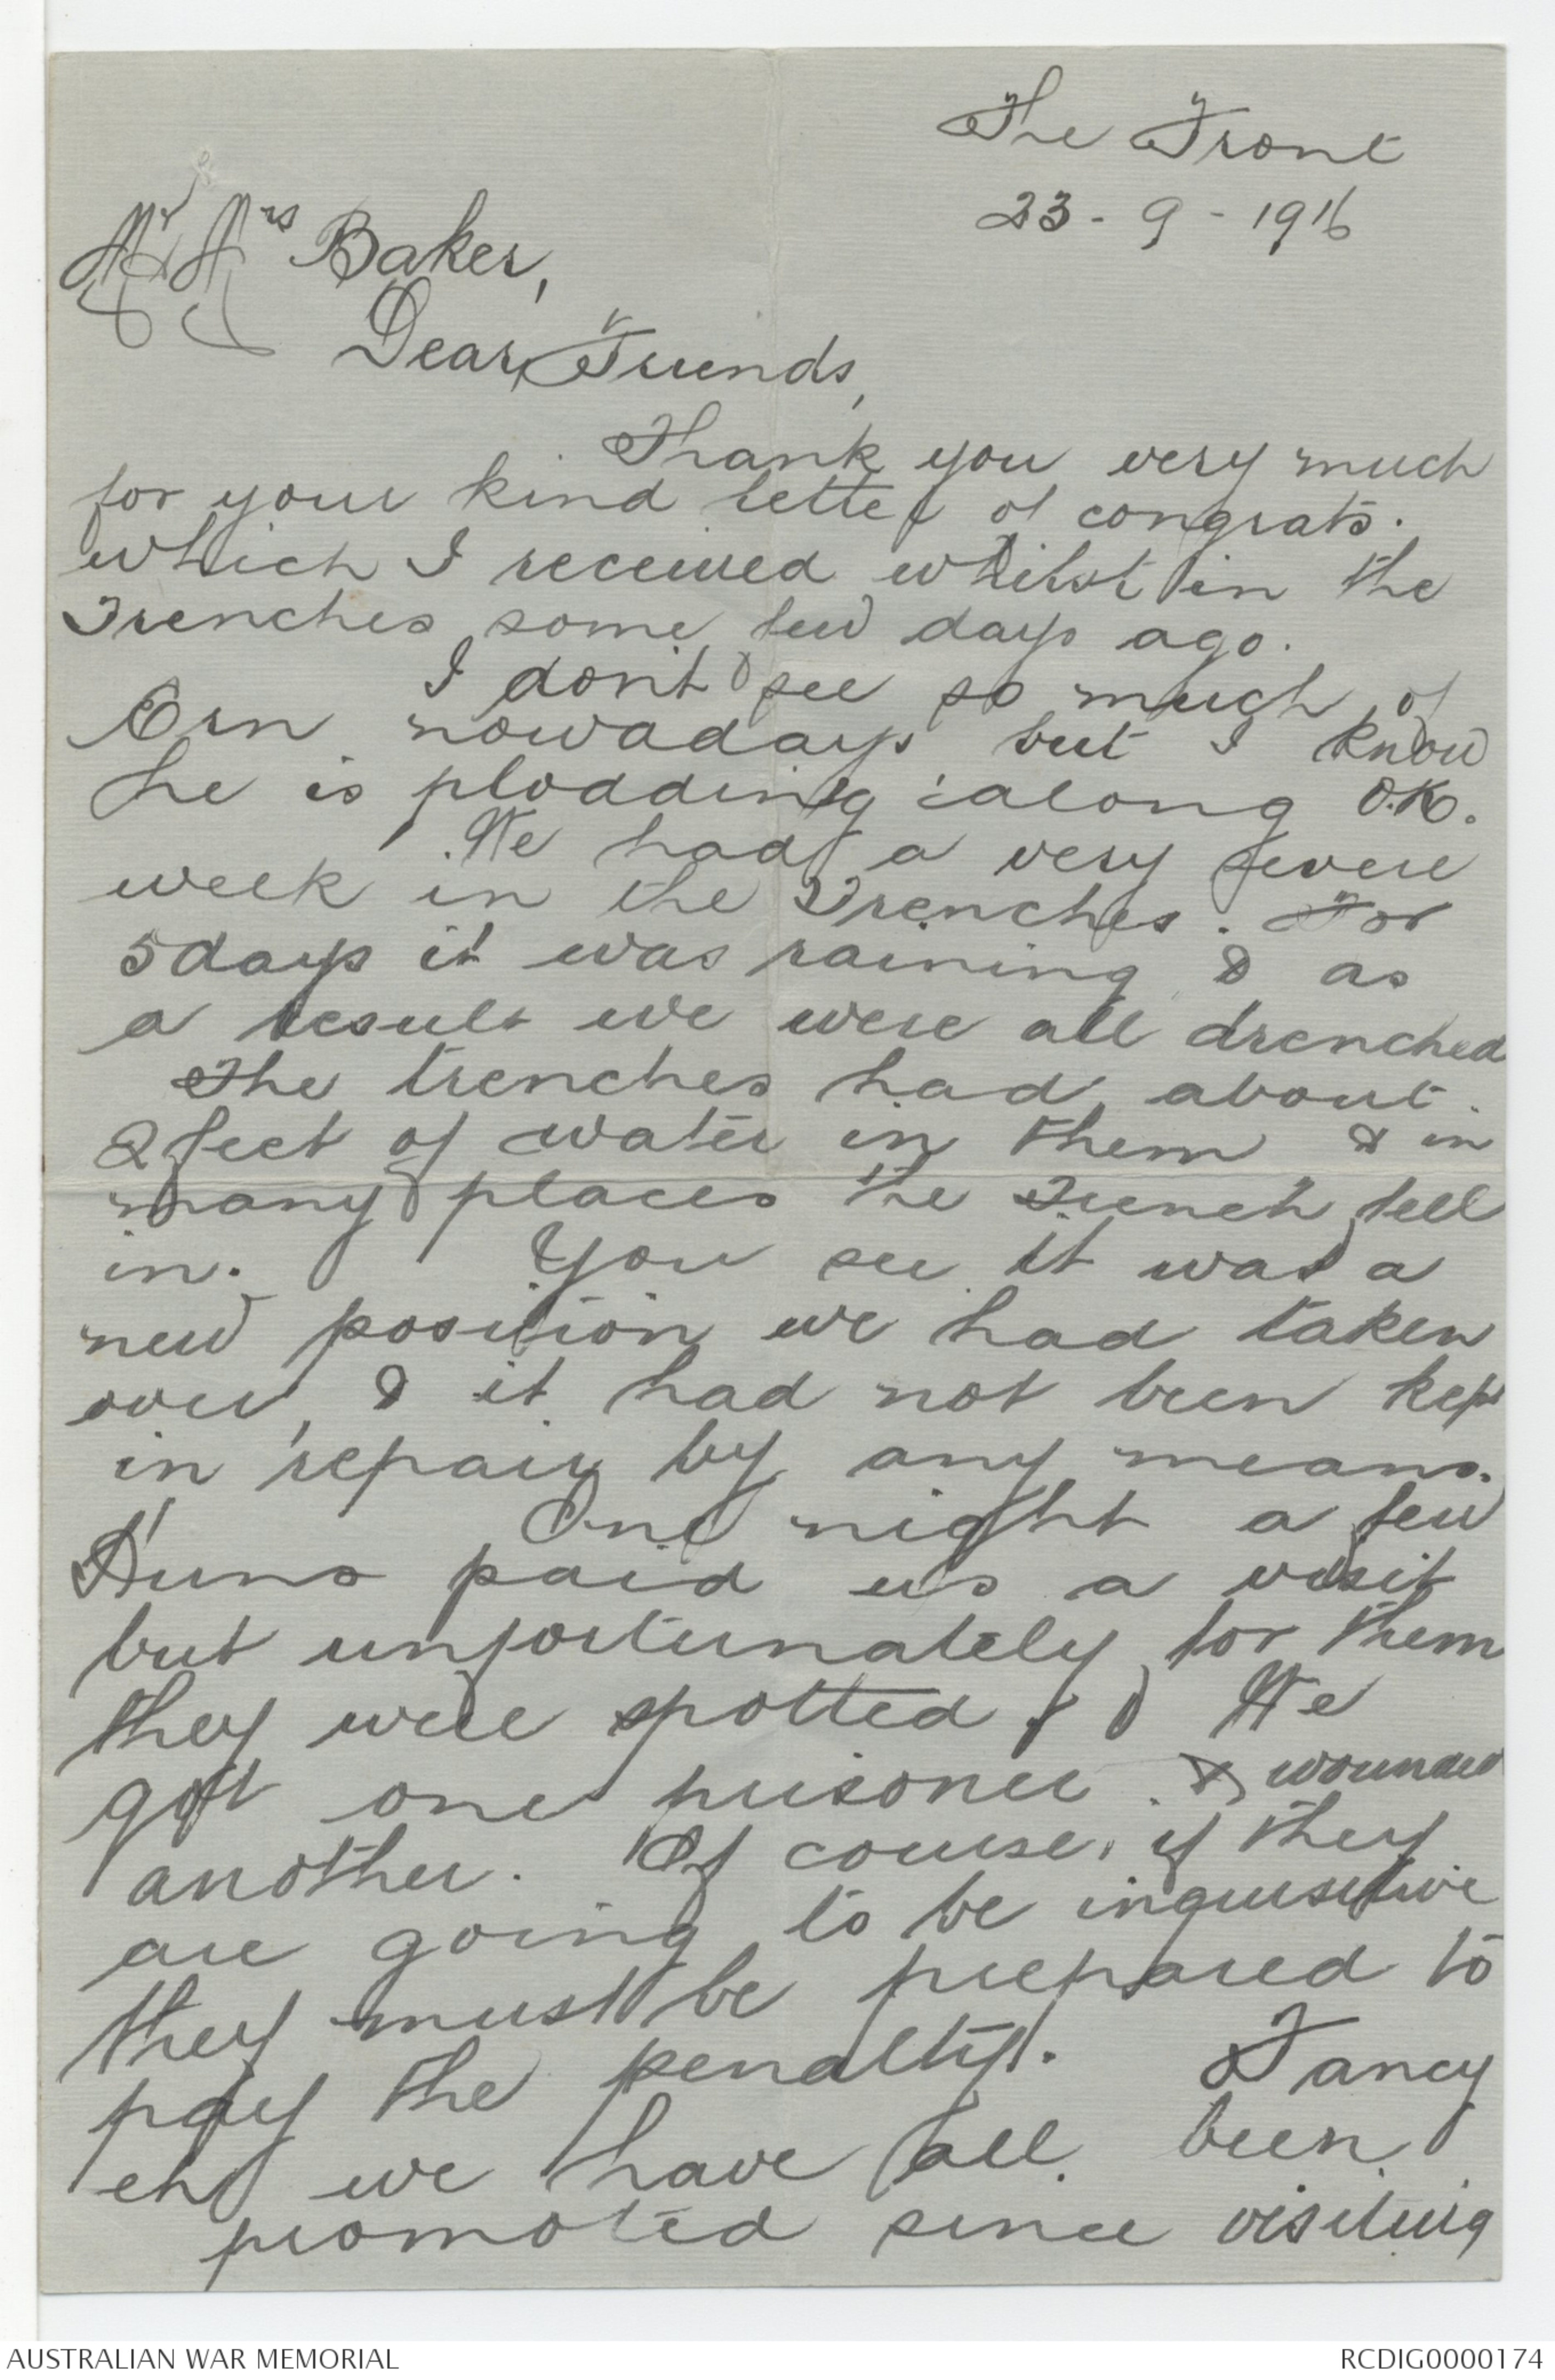 The Front
23-9-1916
Mr & Mrs Baker,
Dear Friends,
Thank you very much
for your kind letter of congrats.
which I received whilst in the
Trenches some few days ago.
I don't see so much of
Ern nowadays but I know
he is plodding along O.K.
We had a very severe
week in the Trenches. For
5 days it was raining & as
a result we were all drenched
The trenches had about
2 feet of water in them & in
many places the Trench fell
in. You see it was a
new position we had taken
over, & it had not been kept
in repair by any means.
One night a few
Huns paid us a visit
but unfortunately for them
they were spotted. We
got one prisoner & wounded
another. Of course, if they
are going to be inquisitive
they must be prepared to
pay the penalty. Fancy
eh we have all been
promoted since visiting
AUSTRALIAN WAR MEMORIAL
RCDIG0000174